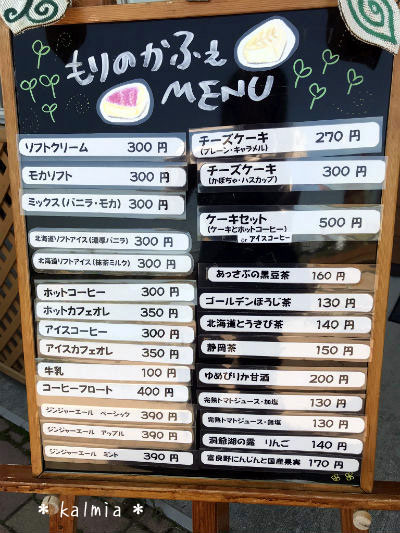 もりのかふぇ
MENU
ソフトクリーム 300 円
モカソフト 300 円
ミックス(バニラ・モカ) 300 円
北海道ソフトアイス(濃厚バニラ) 300 円
北海道ソフトアイス(抹茶ミルク) 300 円
ホットコーヒー 300 円
ホットカフェオレ 350 円
アイスコーヒー 300 円
アイスカフェオレ 350 円
牛乳 100 円
コーヒーフロート 400 円
ジンジャーエール ベーシック 390 円
ジンジャーエール アップル 390 円
ジンジャーエール ミント 390 円
チーズケーキ 270 円
(プレーン・キャラメル)
チーズケーキ 300 円
(かぼちゃ・ハスカップ)
ケーキセット 500 円
(ケーキとホットコーヒー)
or アイスコーヒー
あっさぶの黒豆茶 160 円
ゴールデンほうじ茶 130 円
北海道とうきび茶 140 円
静岡茶 150 円
ゆめぴりか甘酒 200 円
完熟トマトジュース・加塩 130 円
完熟トマトジュース・無塩 130 円
洞爺湖の露 りんご 140 円
富良野にんじんと国産果実 170 円
* kalmia *